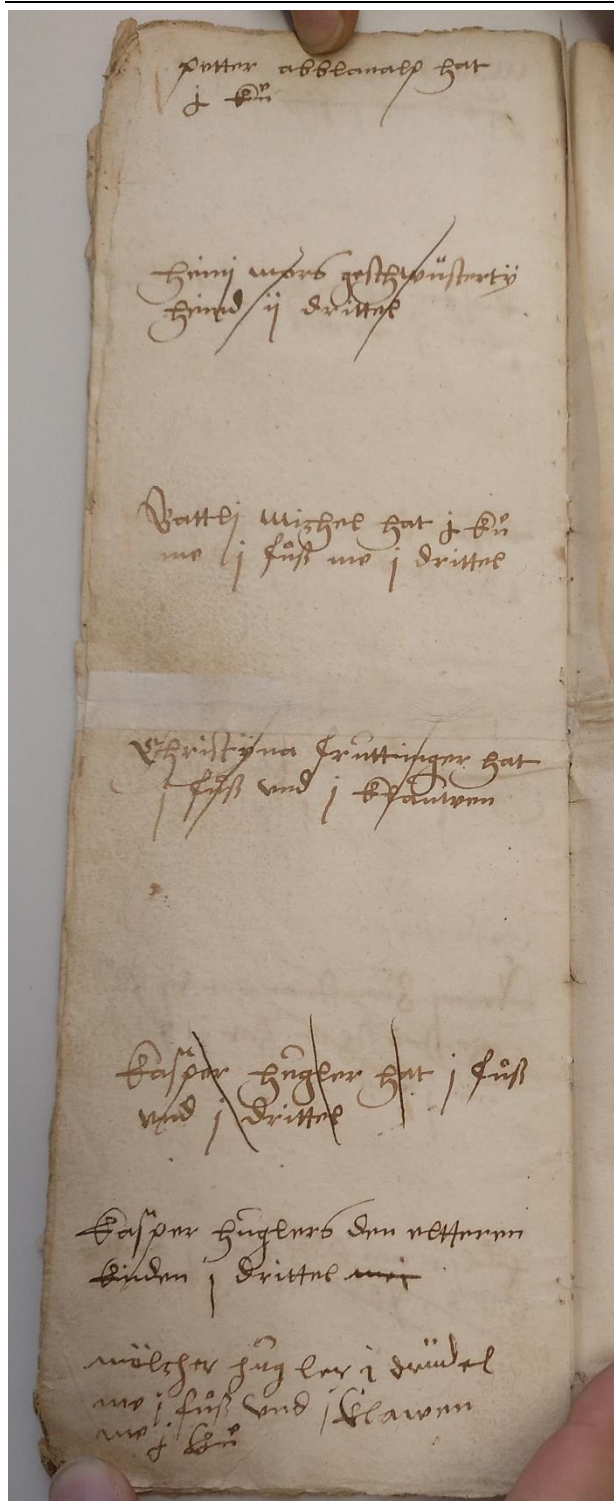 petter abblanalp hat
j ků
heini mors geschwüsterty
heind ij drittel
Battlj Michel hat j ků
me j fůß me j drittel
Christyna fruttinger hat
j fůß und j klauwen
Kasper hugler hat j fůß
und j drittel
kasper huglers den eltteren
kinden j drittel
mölcher hugler j drüdel
me j fůß und j klawen
me j ků